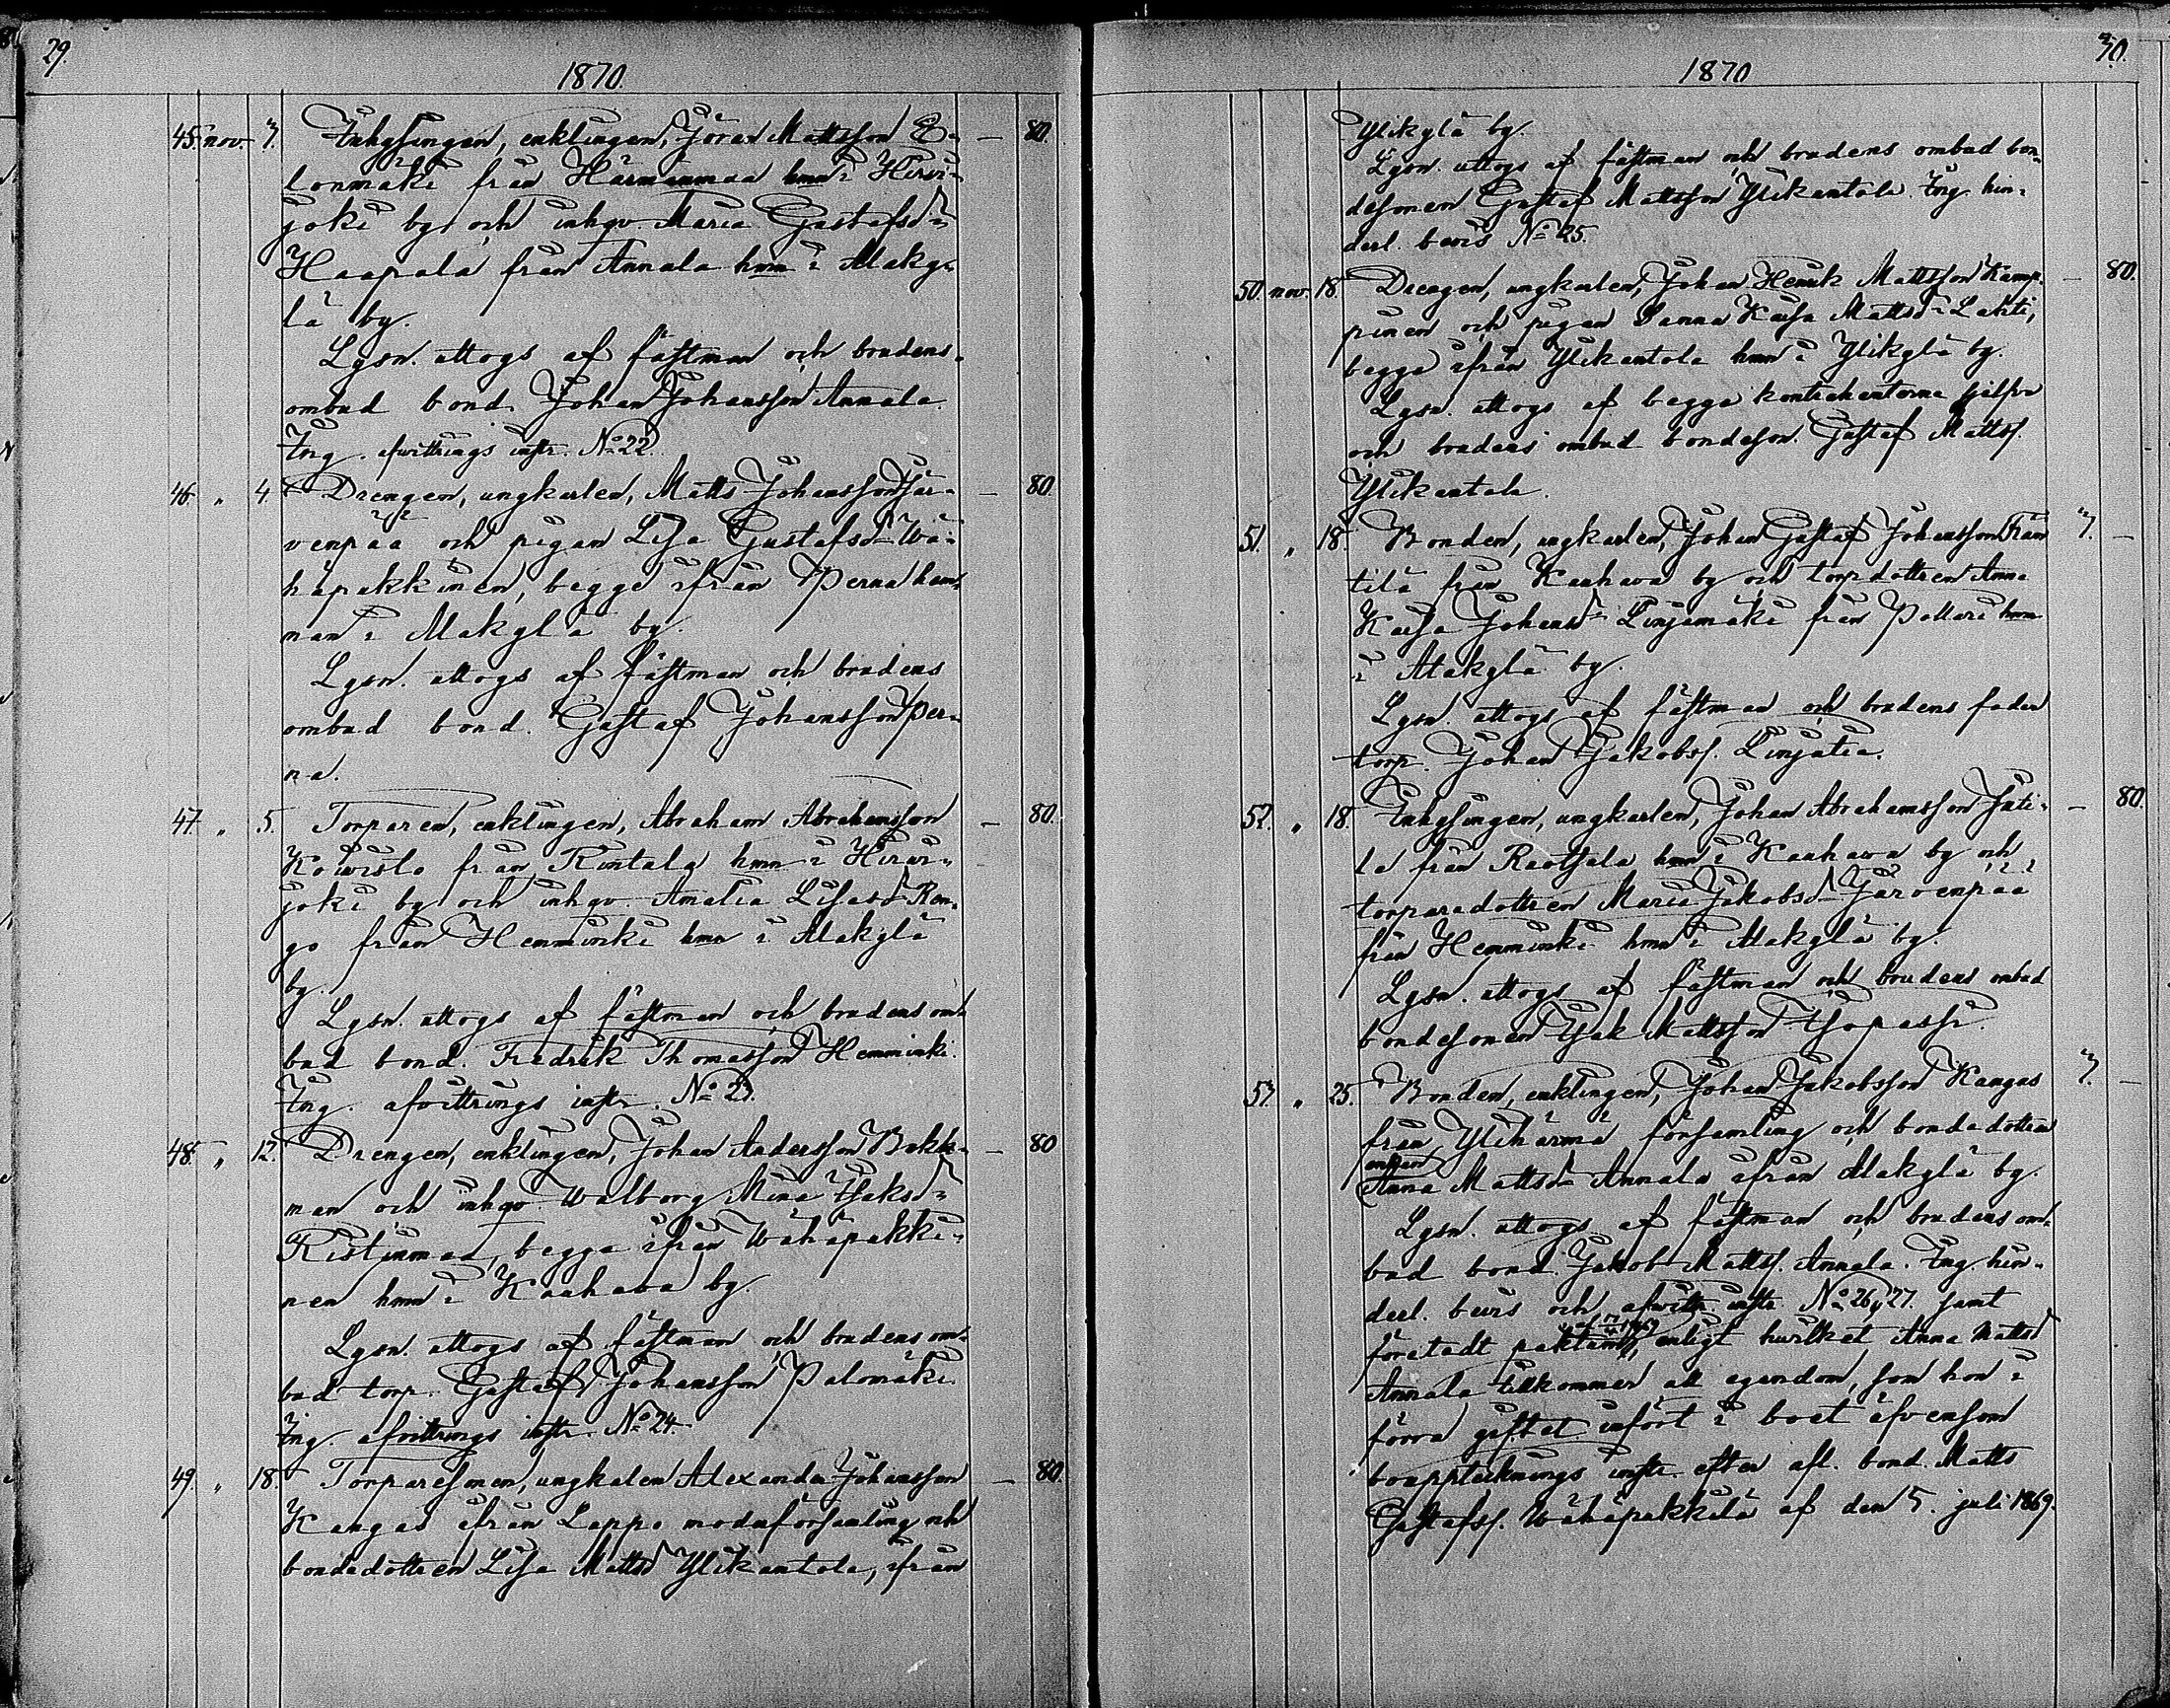 29.
1870.
45. nov. 3. Inhysingen, enklingen, Jöran Mattsson E- — 80.
lonmäki från Härmänmaa hmn i Hirvi-
joki by och inhqv. Maria Gustafsd:r
Haapala från Annala hmn i Alaky-
lä by.
Lysn. uttogs af fästman och brudens
ombud bond. Johan Johansson Annala.
Ing. afvittrings instr. No 22.
46. " 4. Drengen, ungkarlen, Matts Johansson Jär- — 80.
venpää och pigan Lisa Gustafsd:r Wä-
häpakkinen, begge ifrån Perna hem-
man i Alakylä by.
Lysn. uttogs af fästman och brudens
ombud bond. Gustaf Johansson Per-
na.
47. " 5. Torparen, enklingen, Abraham Abrahamsson — 80.
Koivisto från Rintala hmn i Hirvi-
joki by och inhqv. Amalia Lisasd:r Ren-
go från Hemminki hmn i Alakylä
by.
Lysn. uttogs af fästman och brudens om-
bud bond. Fredrik Thomasson Hemminki.
Ing. afvittrings instr. No 23.
48. " 12. Drengen, enklingen, Johan Andersson Bokk- — 80
man och inhqv. Walborg Mina Isaksd:r
Ristinmaa, begge ifrån Wähäpakki-
nen hmn i Kaahava by.
Lysn. uttogs af fästman och brudens om-
bud torp. Gustaf Johansson Palomäki.
Ing. afvittrings instr. No 24.
49. " 18. Torparesonen, ungkalen Alexander Johansson — 80.
Kangas ifrån Lappo moderförsamling och
bondedottren Lisa Mattsd Ylikantola, ifrån
30.
1870
Ylikylä by.
Lysn. uttogs af fästman och brudens ombud bon-
desonen Gustaf Mattsson Ylikantola. Ing. hin-
derl. bevis No 25.
50. nov. 18. Drengen, ungkarlen, Johan Henrik Mattsson Kamp- — 80.
pinen och pigan Sanna Kaisa Mattsd:r Lahti,
begge ifrån Ylikantola hmn i Ylikylä by.
Lysn. uttogs af begge kontrahenterna sjelfva
och brudens ombud bondeson. Gustaf Mattss.
Ylikantola.
51. " 18. Bonden, ungkarlen, Johan Gustaf Johansson Frän 3. —
tilä från Kaahava by och torpdottren Anna
Kaisa Johansd:r Linjamäki från Pollari hmn
i Alakylä by.
Lysn. uttogs af fästman och brudens fader
torp. Johan Jakobss. Linjatie.
52. " 18. Inhysingen, ungkarlen, Johan Abrahamsson Inti- — 80.
la från Raotsala hmn i Kaahava by och
torparedottren Maria Jakobsd:r Järvenpää
från Hemminki hmn i Alakylä by.
Lysn. uttogs af fästman och brudens ombud
bondesonen Isak Mattsson Isopassi.
53. " 25. Bonden, enklingen, Johan Jakobsson Kangas 3. —
från Ylihärmä församling och bondedottren
enkan
Anna Mattsd:r Annala ifrån Alakylä by.
Lysn. uttogs af fästman och brudens om-
bud bond. Jakob Mattss. Annala. Ing. hin-
derl. bevis och afvittr. instr. No 26, 27. samt
företedt paktum, enligt hvilket Anna Mattsd
Annala tillkommer all egendom, som hon i
förra giftet infört i boet äfvensom
bouppteknings instr. efter afl. bond. Matts
Gustafss. Wähäpakkila af den 5. juli 1869.